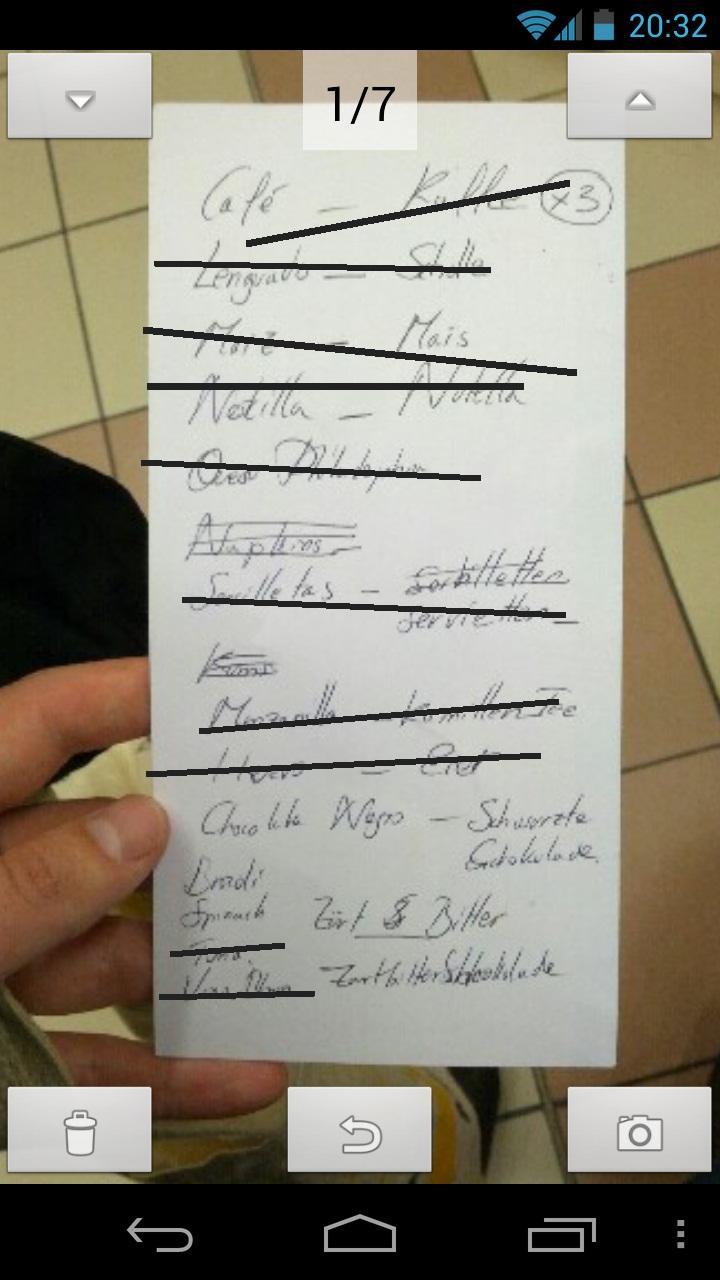 20:32
1/7
Café — Kaffee x3
Lenguado — Scholle
Maiz — Mais
Notilla — Nutella
Queso Philadelphia
Napkins
Servilletas — Serbilletten
Servietten
Manzanilla — Kamillen Tee
Huevo — Eier
Chocolate Negro — Schwarzte
Schokolade
Spinach Zart & Bitter
Tuna
Zartbitter Schokolade